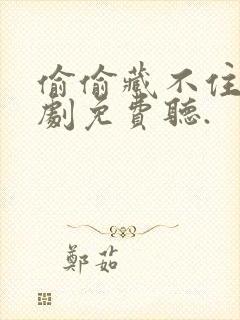 偷偷藏不住
劇免費聽.
鄭茹